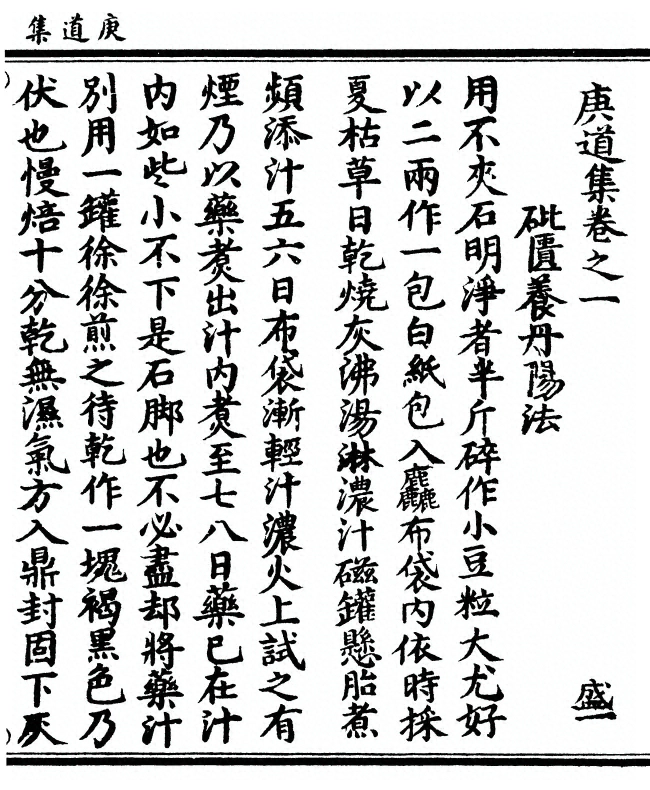 庚道集
庚道集卷之一 盛一
砒匱養丹陽法
用不夾石明淨者半斤碎作小豆粒大尤好
以二兩作一包白紙包入麤布袋內依時採
夏枯草日乾燒灰沸湯淋濃汁磁罐懸胎煮
頻添汁五六日布袋漸輕汁濃火上試之有
煙乃以藥煑出汁內煑至七八日藥已在汁
內如些小不下是石脚也不必盡却將藥汁
別用一罐徐徐煎之待乾作一塊褐黑色乃
伏也慢焙十分乾無濕氣方入鼎封固下灰